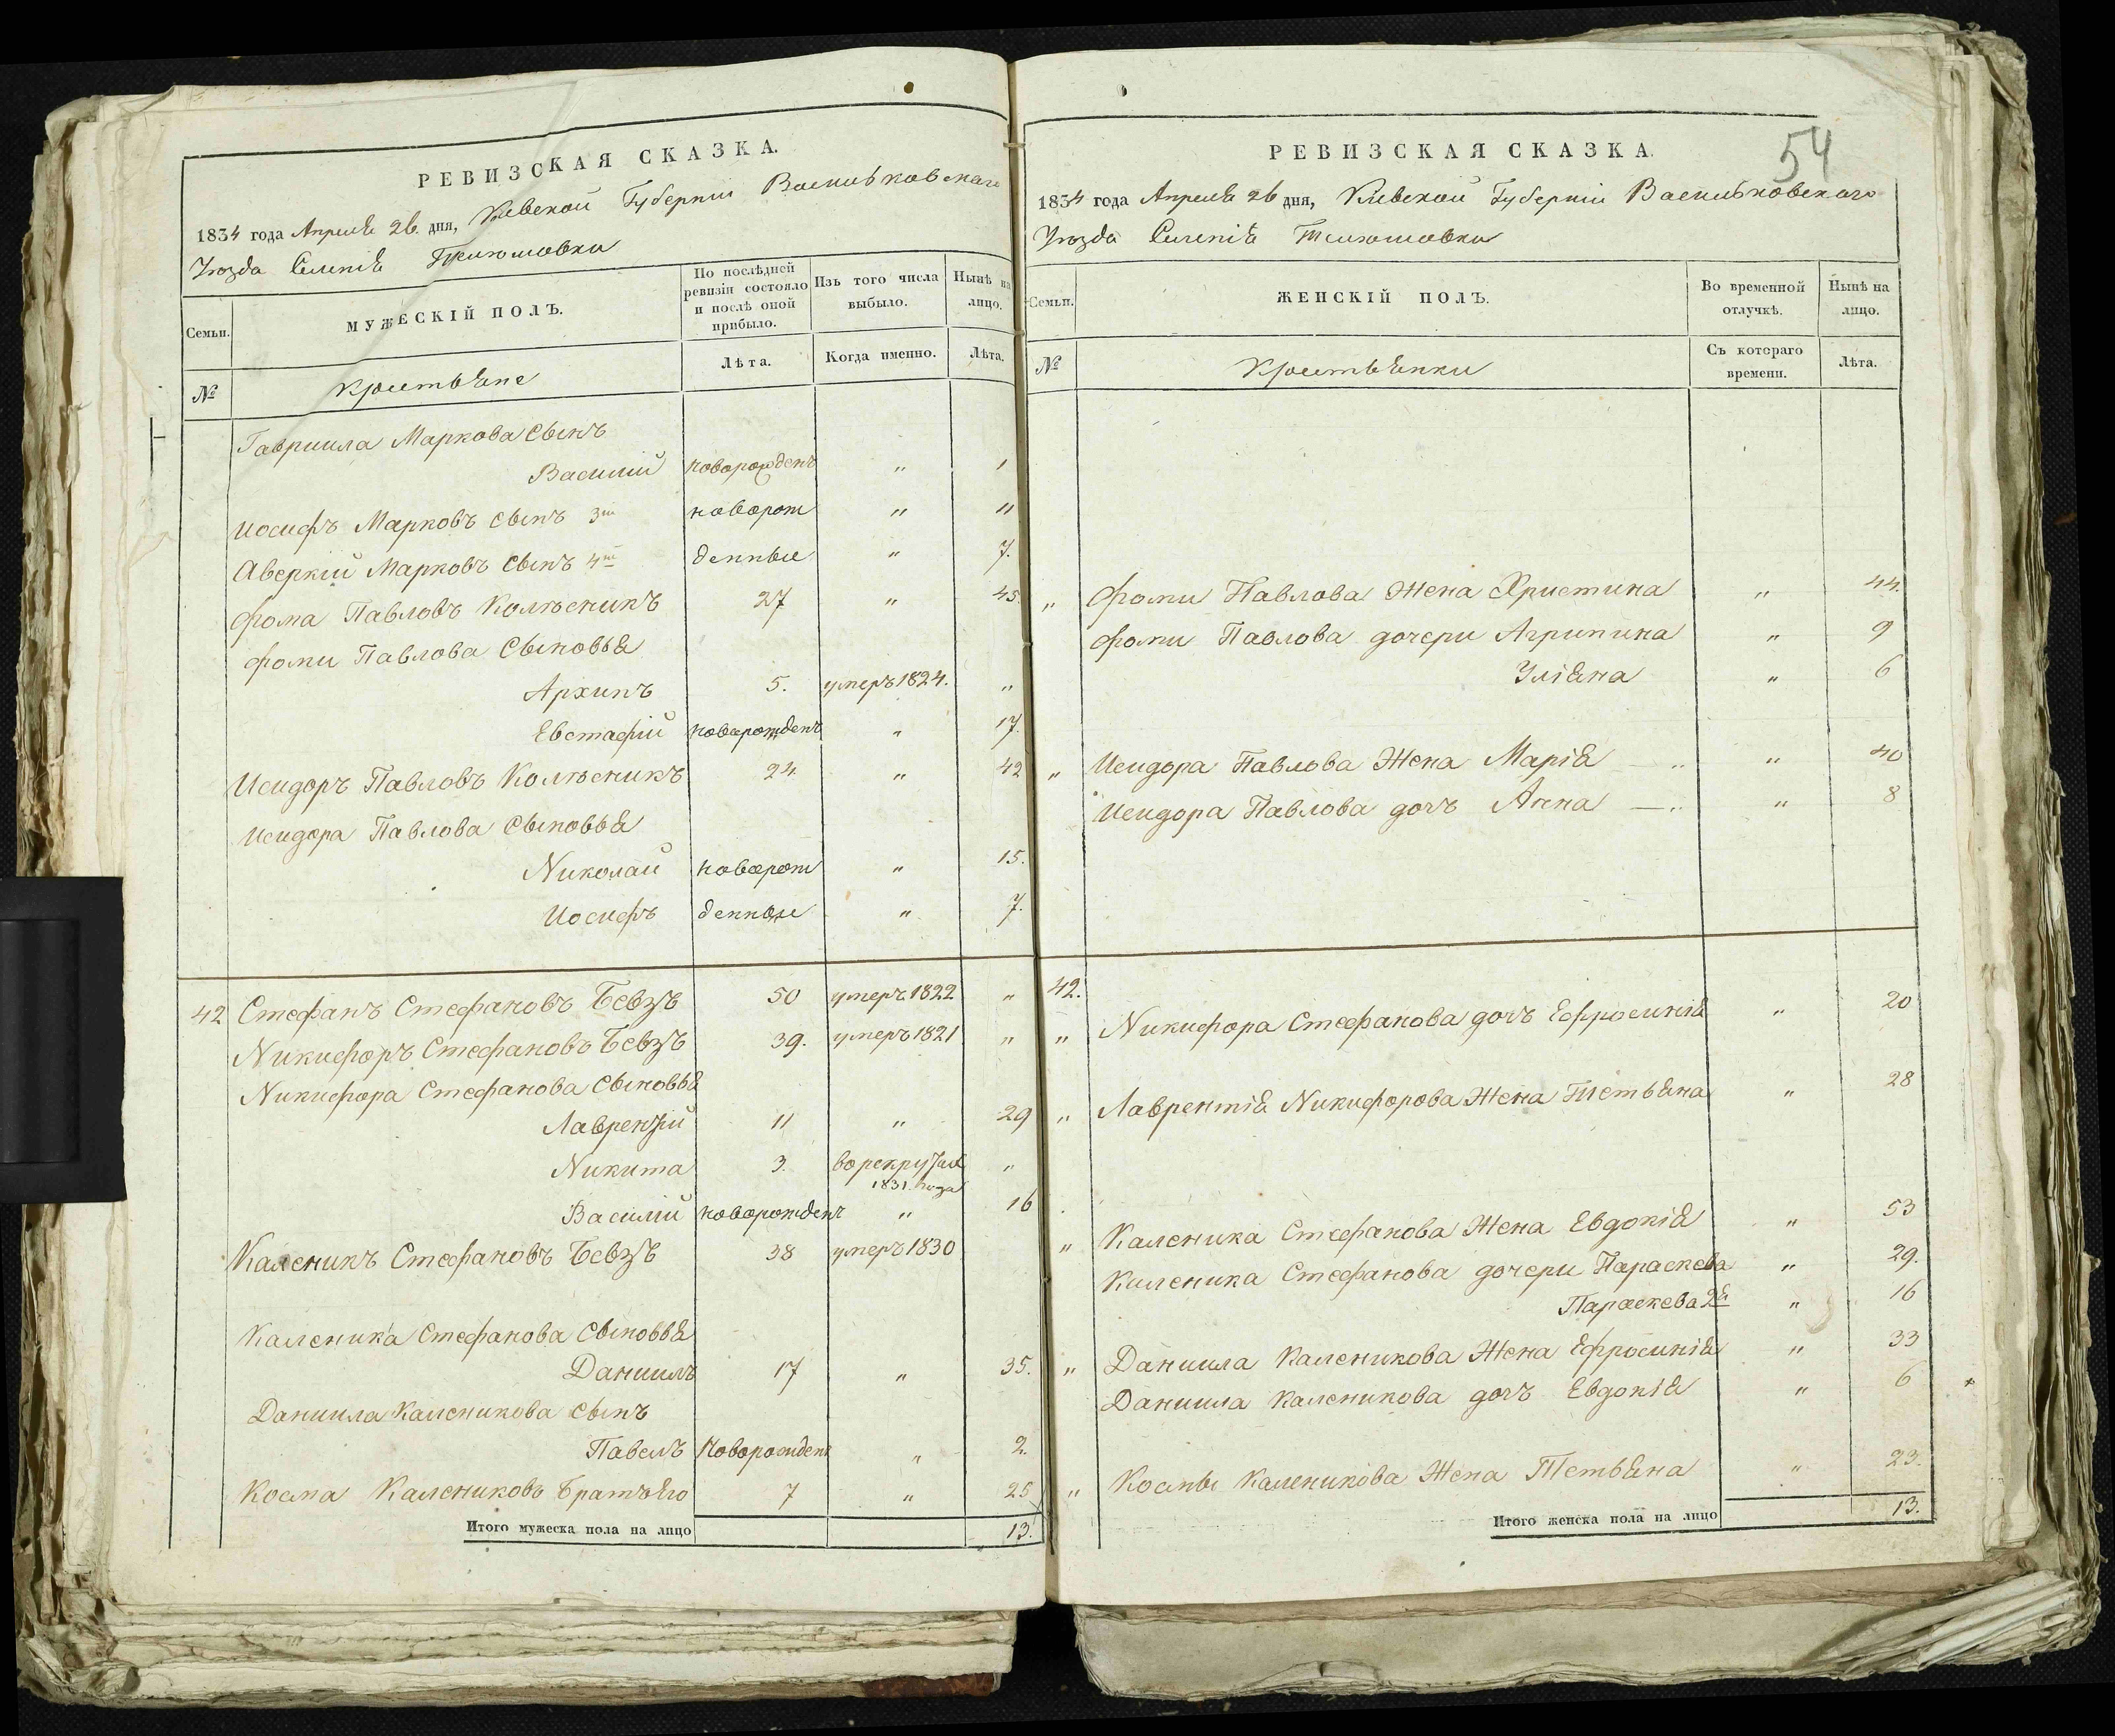 РЕВИЗСКАЯ СКАЗКА.
1834 года Апреля 26. дня, Киевской Губерніи Васильковскаго
Уезда Селенія
Семьи.
МУЖЕСКІЙ ПОЛЪ.
По послѣдней ревизіи состояло и послѣ оной прибыло.
Изъ того числа выбыло.
Нынѣ на лицо.
№
Крестьяне
Лѣта.
Когда именно.
Лѣта.
Гавриила Маркова Сынъ
Василий новорожденъ " 1
Иосифъ Марковъ сынъ 3й новорож " 11
Аверкій Марковъ Сынъ 4й денные " 7.
Фома Павловъ Колѣсникъ 27 " 45.
Фомы Павлова Сыновья
Архипъ 5. умеръ 1824. "
Евстафій новорожденъ " 17.
Исидоръ Павловъ Колѣсникъ 24 " 42
Исидора Павлова Сыновья
Николай новорож " 15.
Иосифъ денные " 7.
42 Стефанъ Стефановъ Бевзъ 50 умеръ 1822 "
Никифоръ Стефановъ Бевзъ 39. умеръ 1821 "
Никифора Стефанова Сыновья
Лаврентій 11 " 29
Никита 3. "
1831. года
Василій новорожденъ " 16
Каленикъ Стефановъ Бевзъ 38 умеръ 1830
Каленика Стефанова Сыновья
Даниилъ 17 " 35.
Даниила Каленикова сынъ
Павелъ Новорожден " 2.
Косма Калениковъ братъ его 7 " 25
Итого мужеска пола на лицо 13.
54
РЕВИЗСКАЯ СКАЗКА.
1834 года Апреля 26 дня, Киевской Губерніи Васильковскаго
Уезда Селенія
Семьи.
ЖЕНСКІЙ ПОЛЪ.
Во временной отлучкѣ.
Нынѣ на лицо.
№
Крестьянки
Съ котораго времени.
Лѣта.
" Фомы Павлова Жена Христина " 44.
Фомы Павлова дочери Агрипина " 9
Уліяна " 6
" Исидора Павлова Жена Марія " 40
Исидора Павлова дочъ Анна " 8
42.
" Никифора Стефанова дочъ Ефросинія " 20
" Лаврентія Никифорова Жена Тетьяна " 28
" Каленика Стефанова Жена Евдокія " 53
Каленика Стефанова дочери Параскева " 29.
Параскева 2я " 16
" Даниила Каленикова Жена Ефросинія " 33
Даниила Каленикова дочъ Евдокія " 6
" Космы Каленикова Жена Тетьяна " 23.
Итого женска пола на лицо 13.